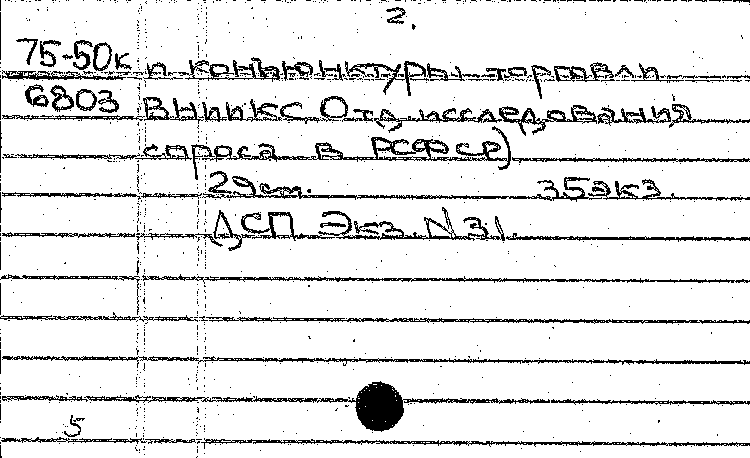 2.
75-50к и конъюнктуры торговли
6803 ВНИИКС, Отд. исследования
спроса в РСФСР)
29 см. 35 экз.
ДСП. Экз. N 31.
5